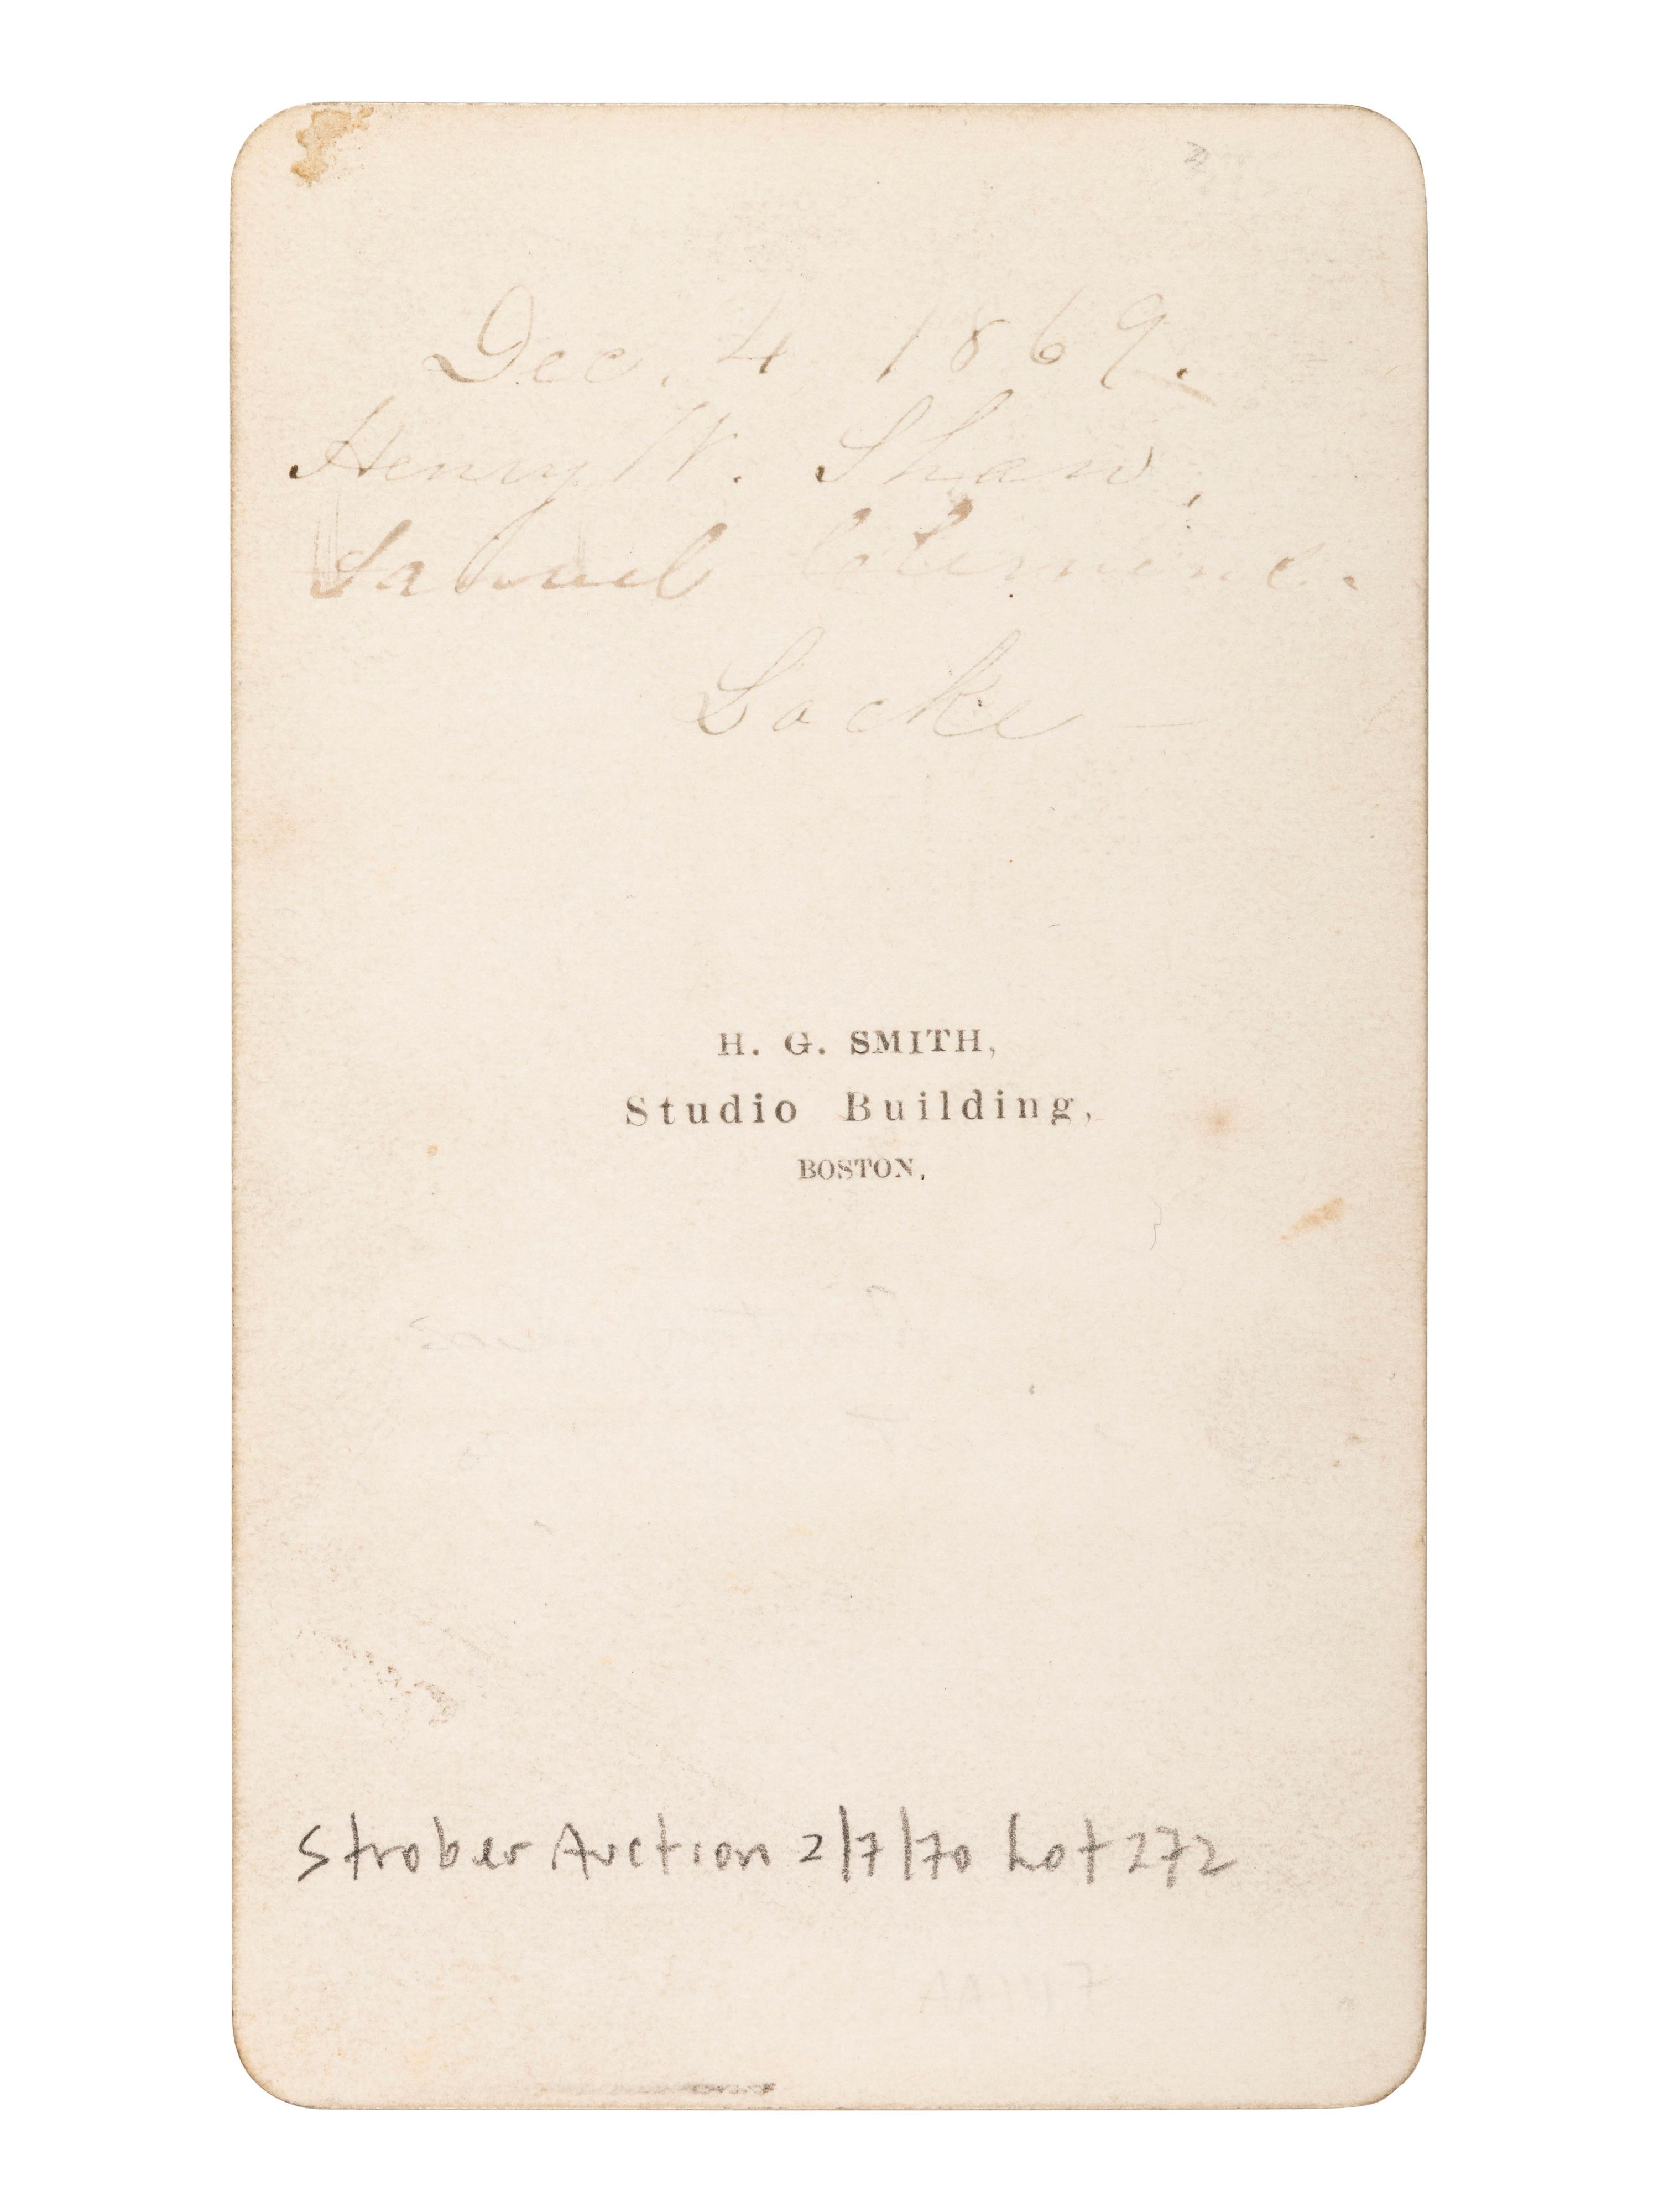 Dec. 4 1869.
Henry W. Shaw,
Samuel Clemens.
Locke —
H. G. SMITH,
Studio Building,
BOSTON,
Strober Auction 2/7/70 Lot 272